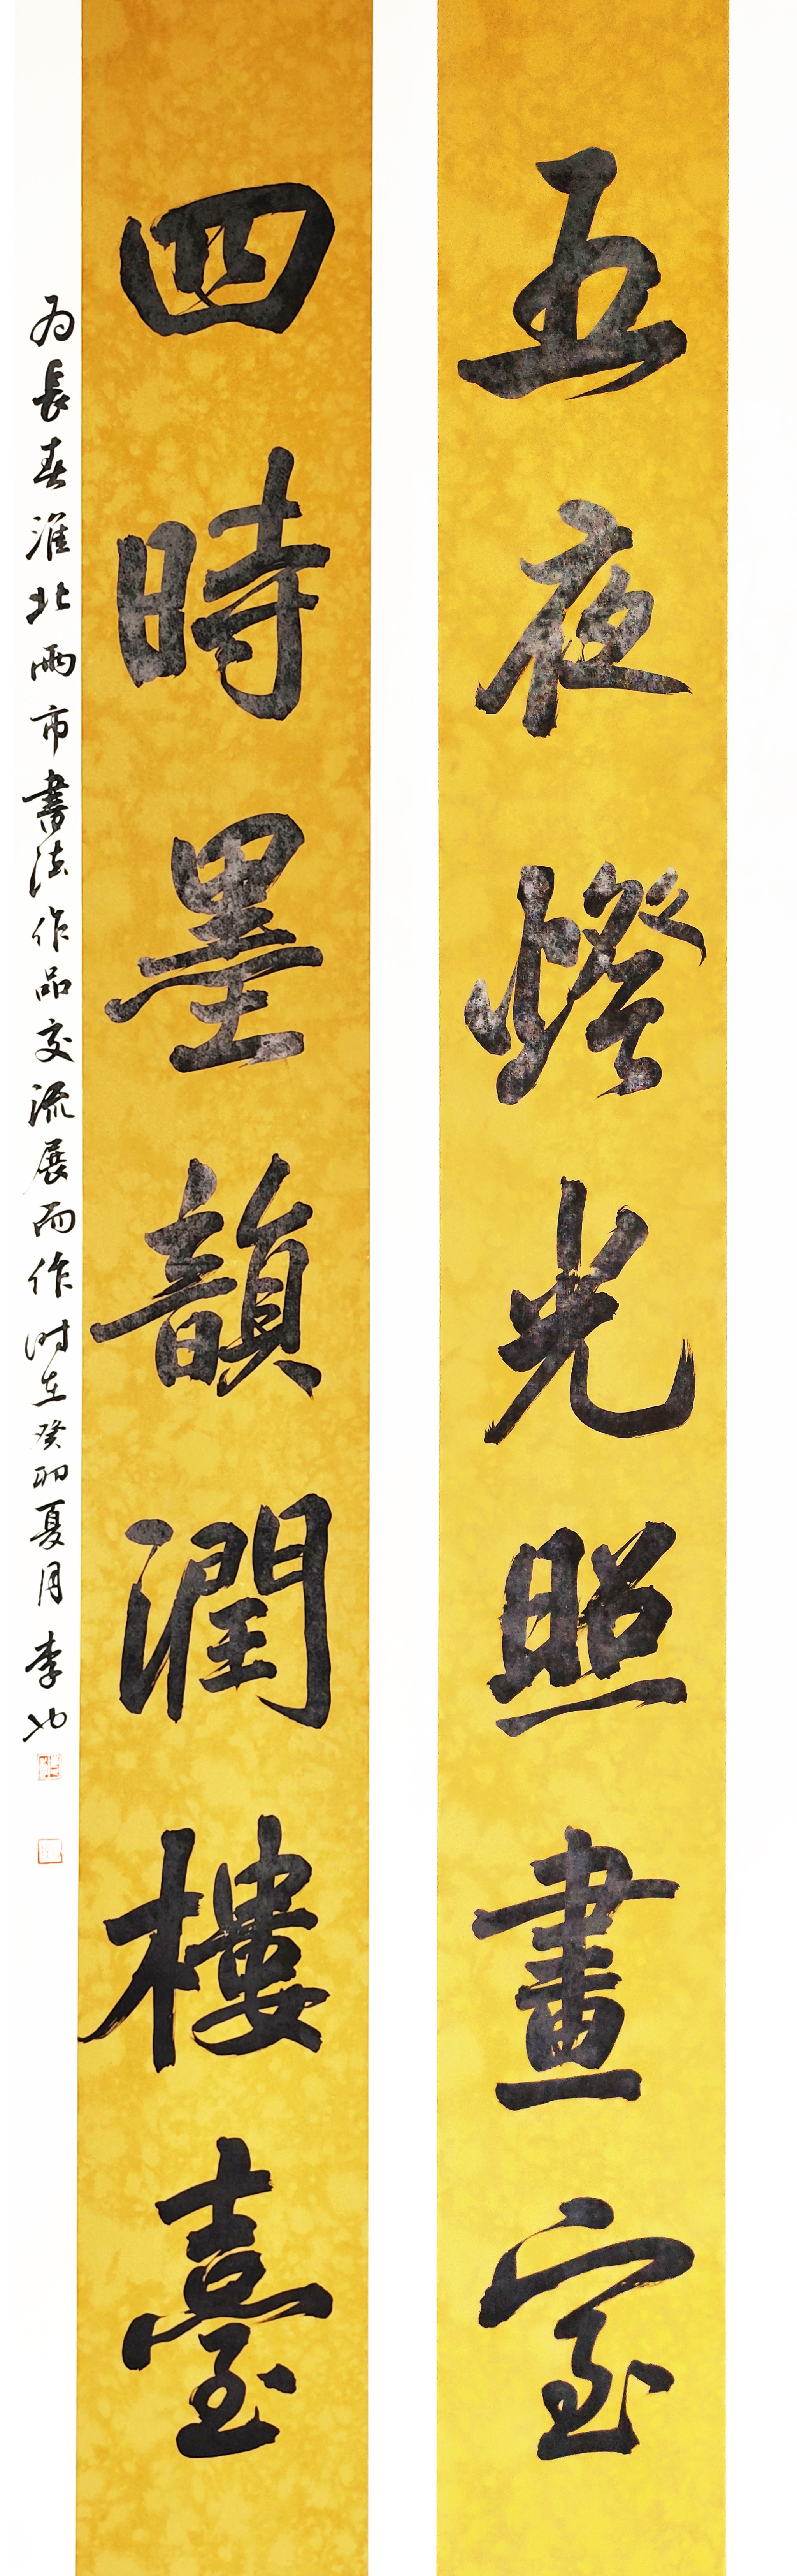 五夜燈光照畫室
四時墨韻潤樓臺
为長春淮北兩市書法作品交流展而作时在癸卯夏月李